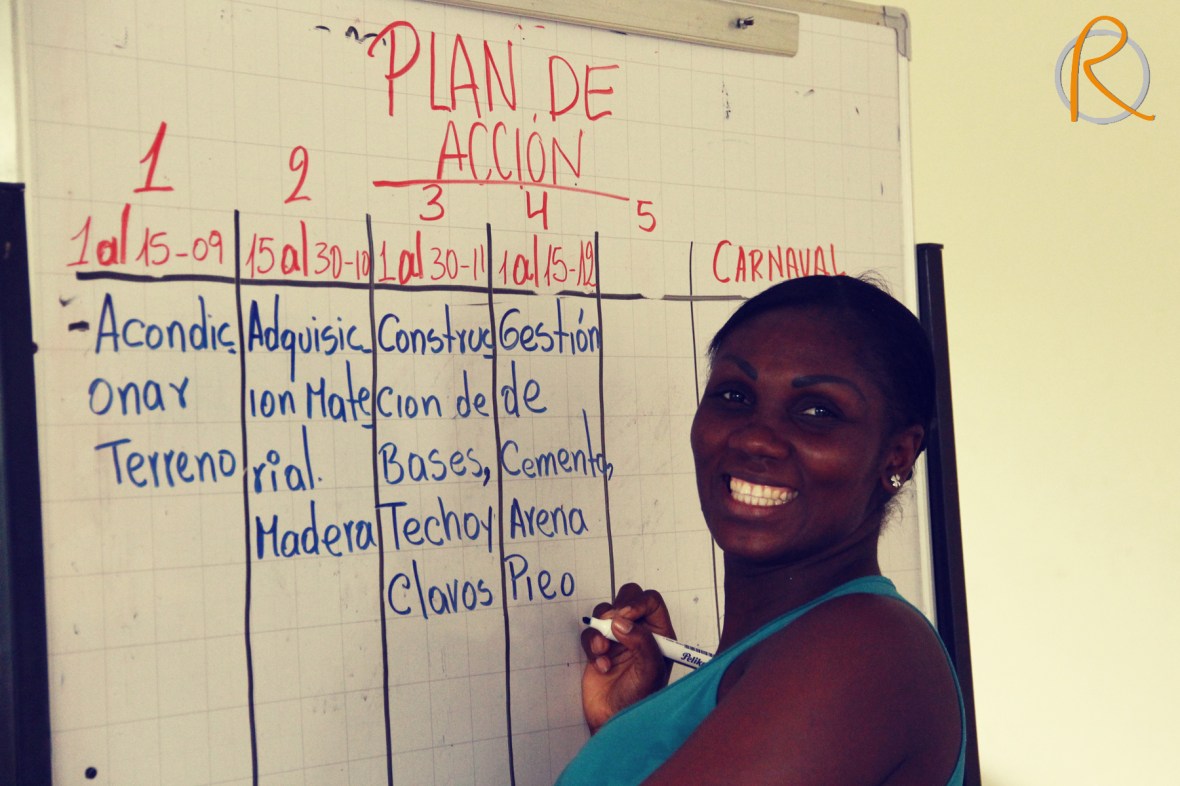 PLAN DE
ACCIÓN
1 2 3 4 5
1 al 15-09 15 al 30-10 1 al 30-11 1 al 15-12 CARNAVAL
-Acondic
onar
Terreno
Adquisic
ion Mate
rial.
Madera
Construc
cion de
Bases,
Techo y
Clavos
Gestión
de
Cemento,
Arena
Pieo
Pelik
R